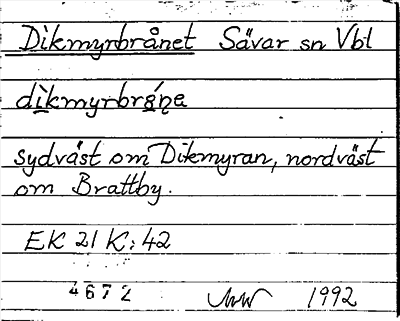 Dikmyrbrånet Sävar sn Vbl
dìkmyrbrǻn̥e
sydväst om Dikmyran, nordväst
om Brattby.
EK 21 K: 42
4672 1992